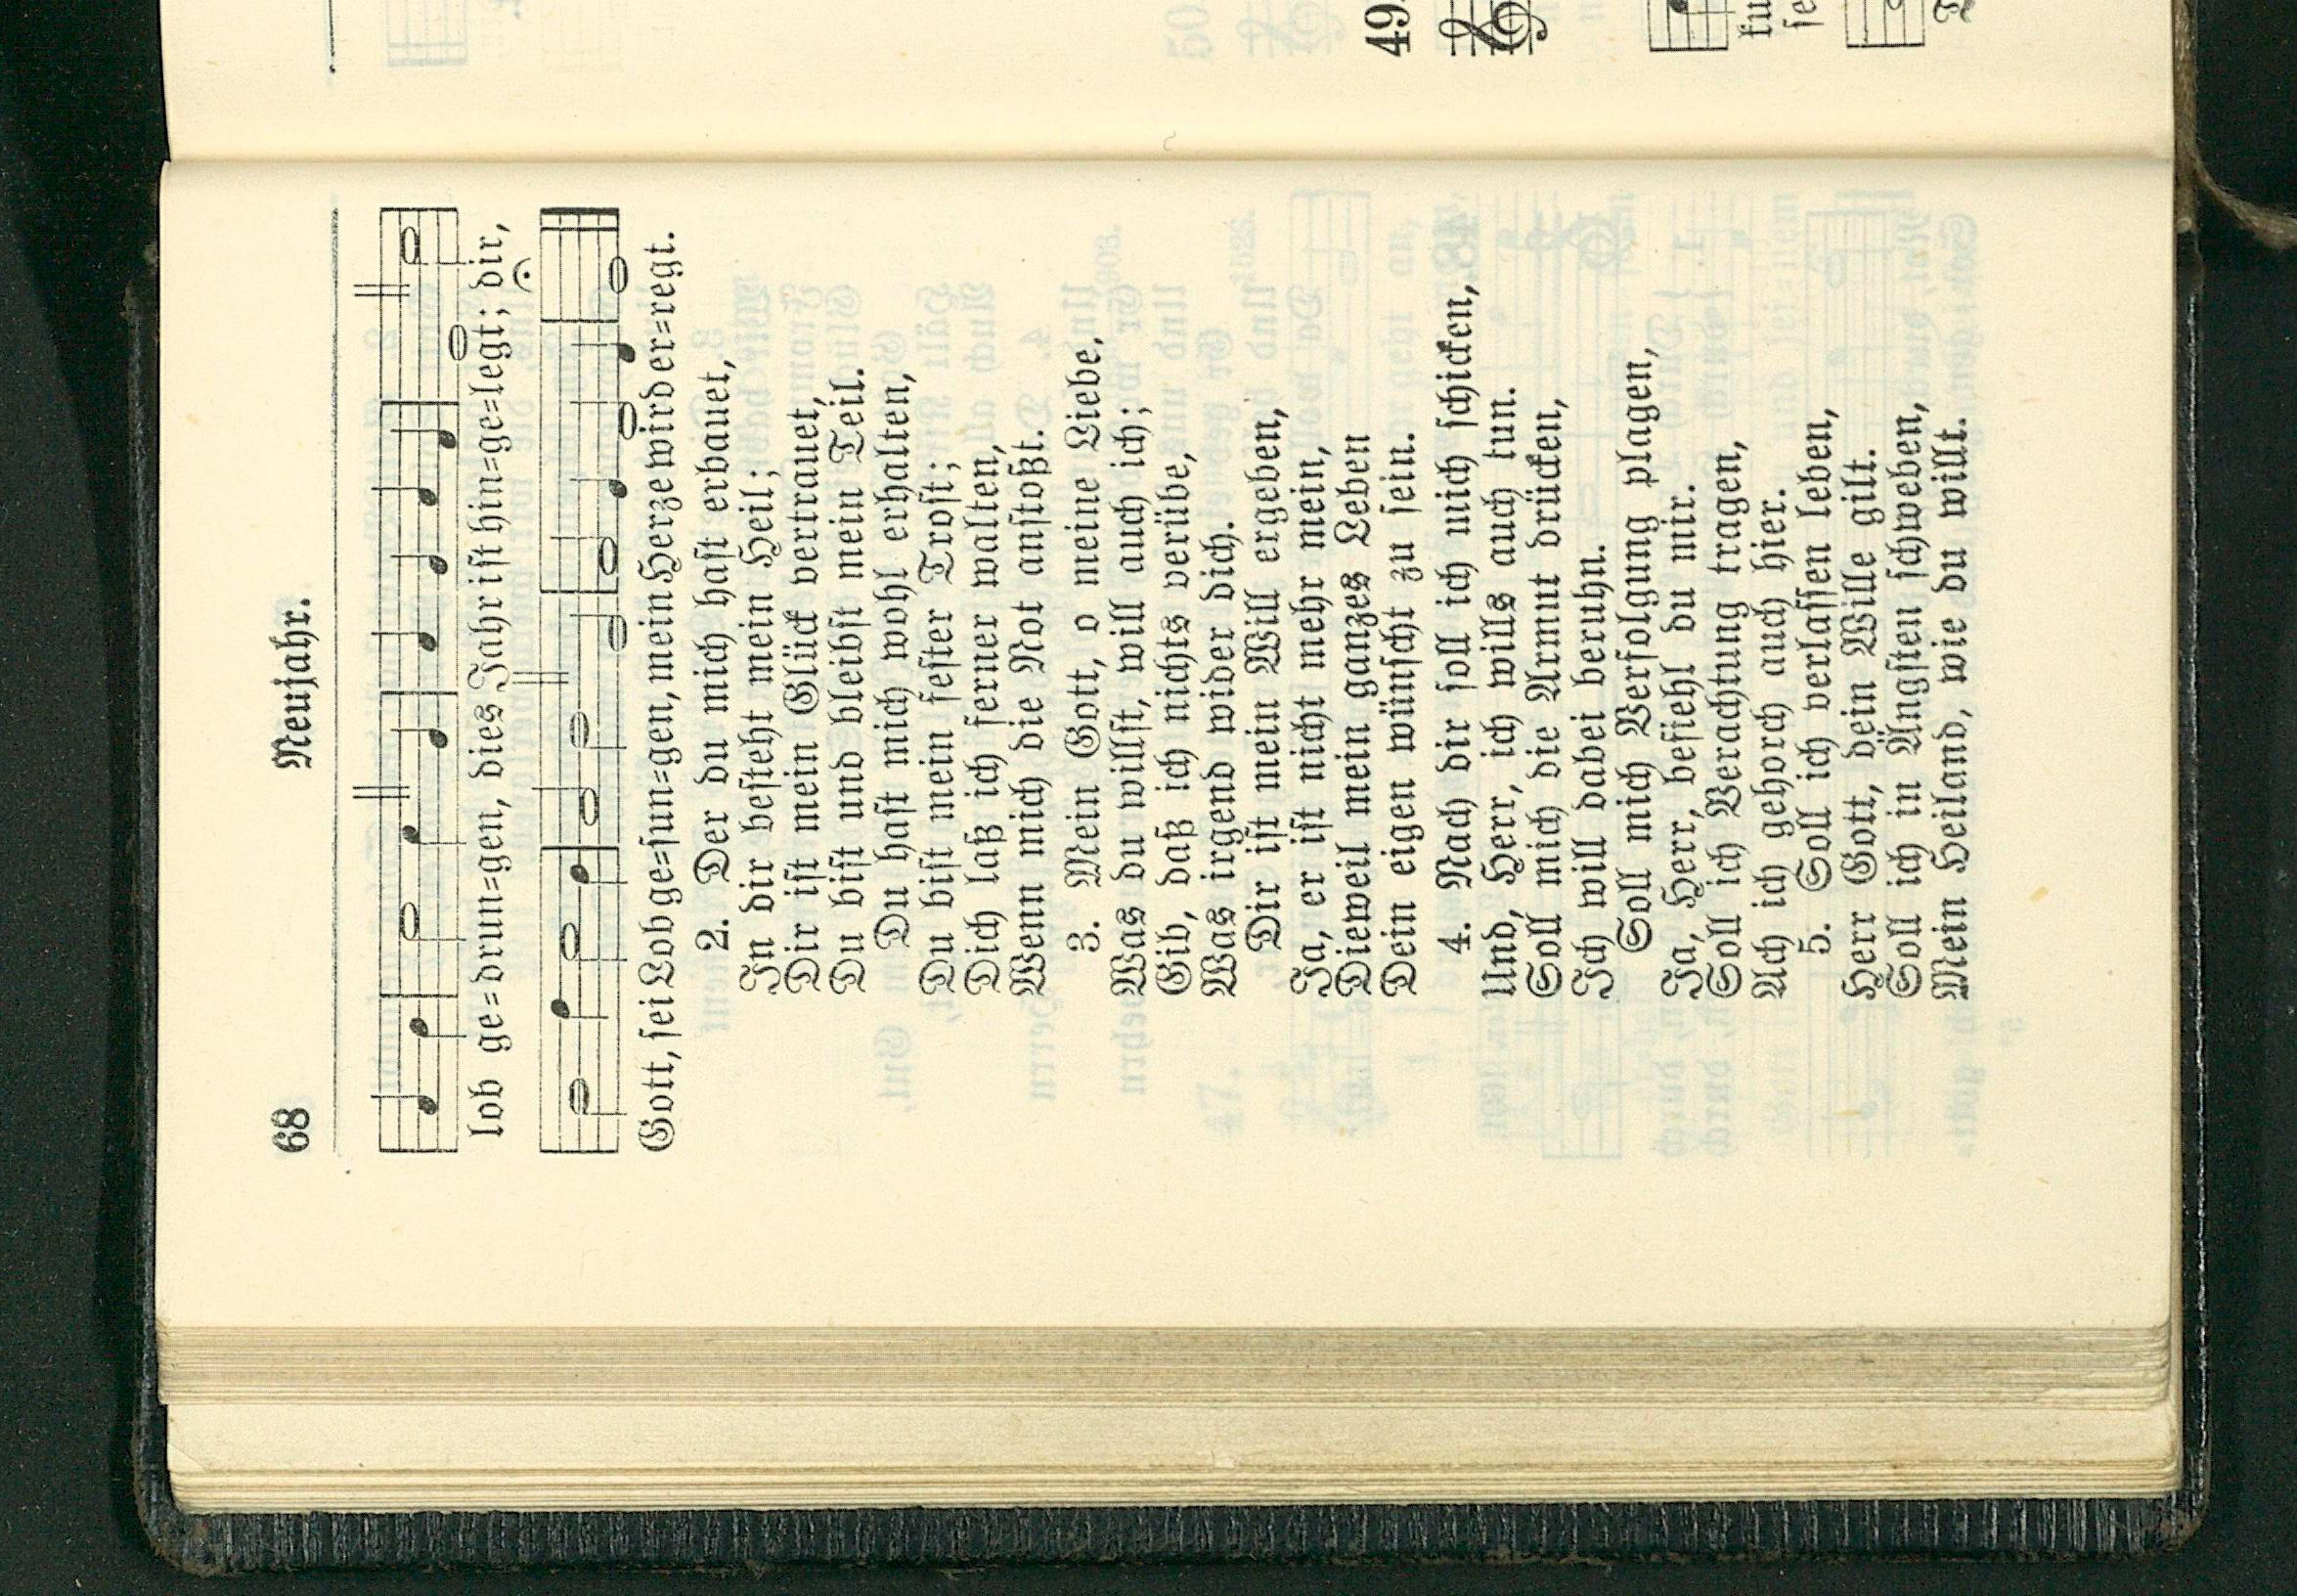 68
Neujahr.
lob ge=drun=gen, dies Jahr ist hin=ge=legt; dir,
Gott, sei Lob ge=sun=gen, mein Herze wird er=regt.
2. Der du mich hast erbauet,
In dir besteht mein Heil;
Dir ist mein Glück vertrauet,
Du bist und bleibst mein Teil.
Du hast mich wohl erhalten,
Du bist mein fester Trost;
Dich laß ich ferner walten,
Wenn mich die Not anstoßt.
3. Mein Gott, o meine Liebe,
Was du willst, will auch ich;
Gib, daß ich nichts verübe,
Was irgend wider dich.
Dir ist mein Will ergeben,
Ja, er ist nicht mehr mein,
Dieweil mein ganzes Leben
Dein eigen wünscht zu sein.
4. Nach dir soll ich mich schicken,
Und, Herr, ich wills auch tun.
Soll mich die Armut drücken,
Ich will dabei beruhn.
Soll mich Verfolgung plagen,
Ja, Herr, befiehl du mir.
Soll ich Verachtung tragen,
Ach ich gehorch auch hier.
5. Soll ich verlassen leben,
Herr Gott, dein Wille gilt.
Soll ich in Ängsten schweben,
Mein Heiland, wie du willt.
49.